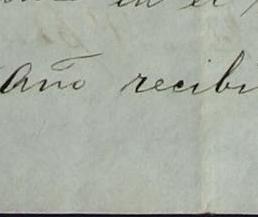 en el
Año recibi